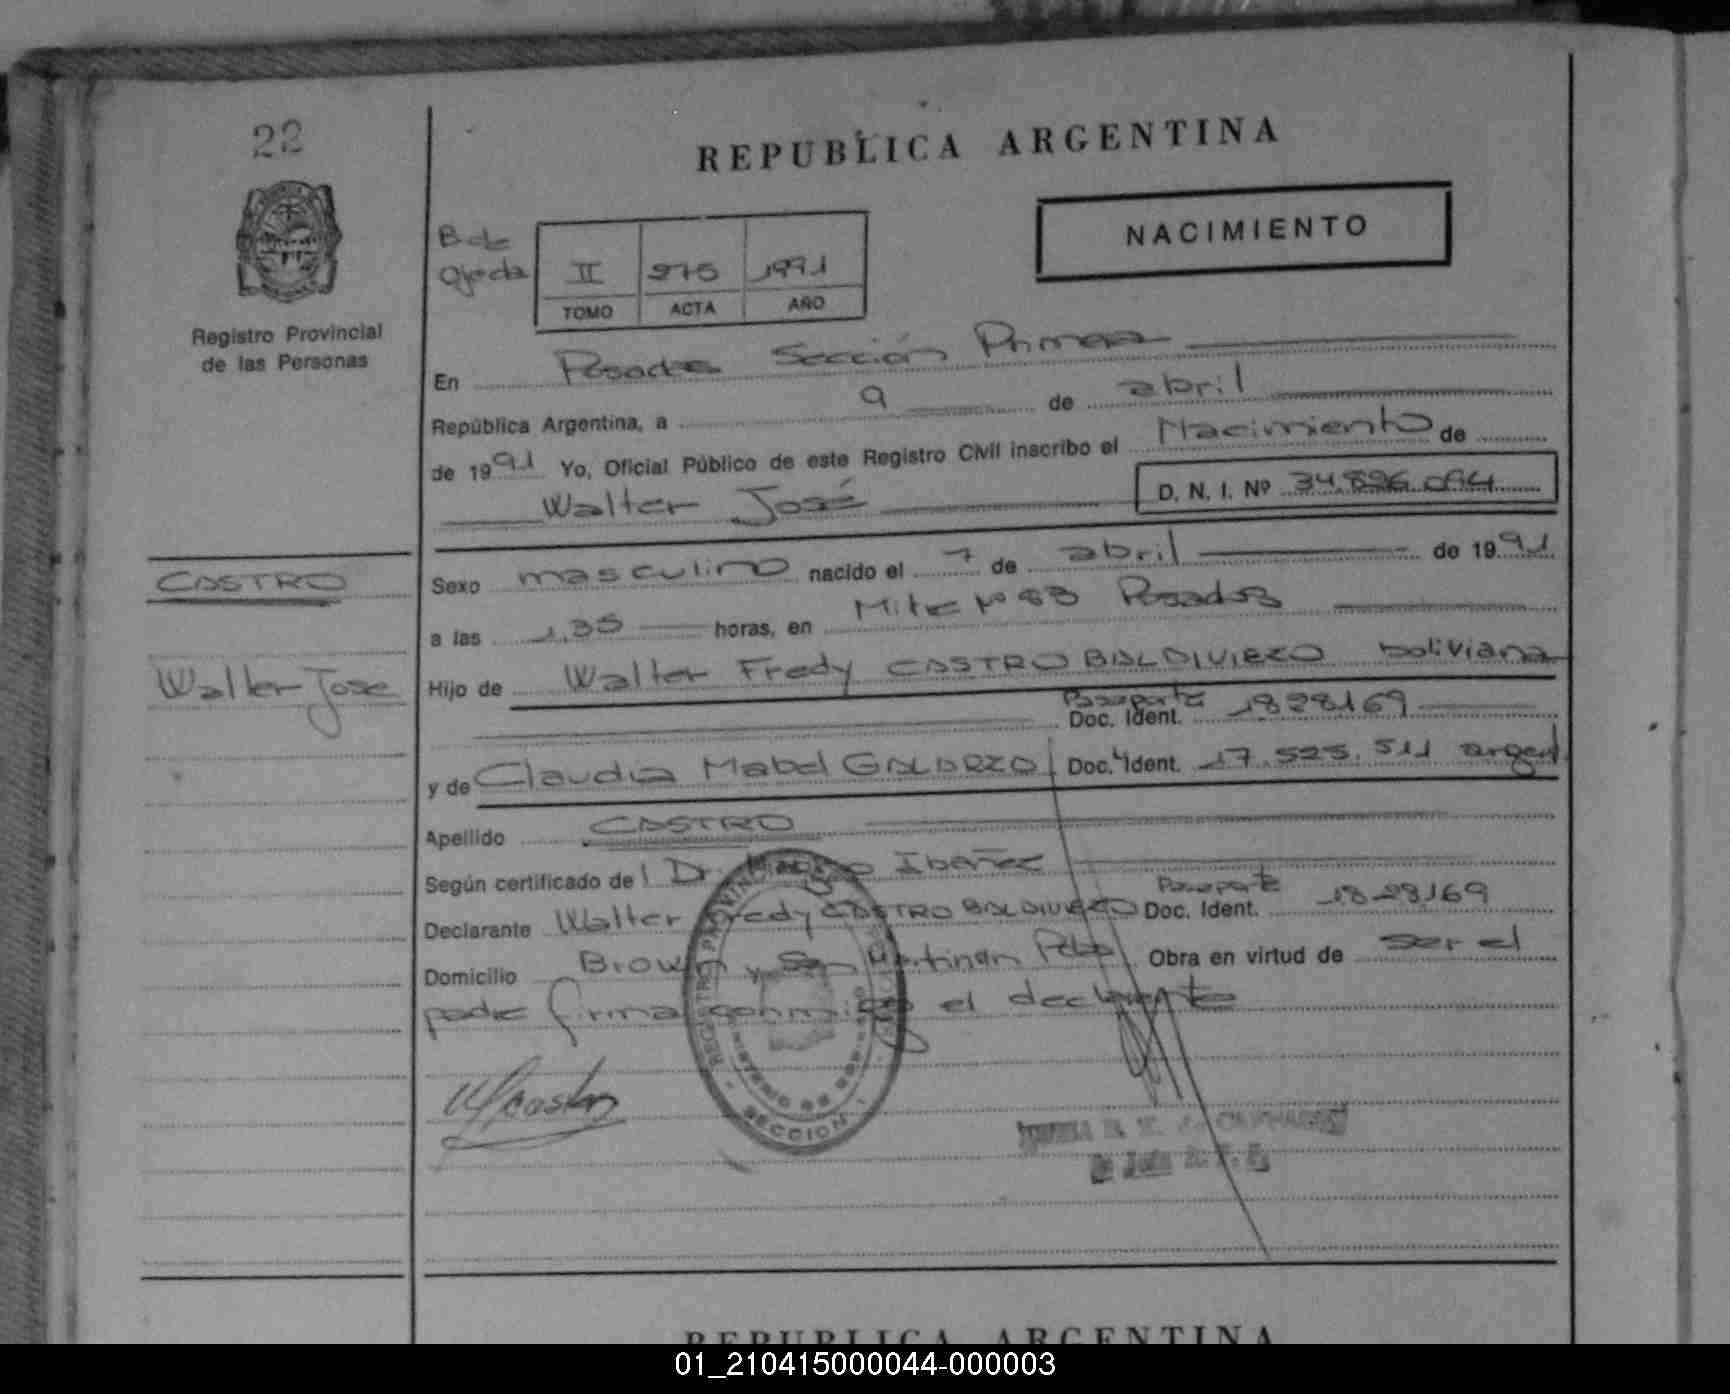 22
REPUBLICA ARGENTINA
NACIMIENTO
Registro Provincial
de las Personas
B de
Ojeda
II 275 1991
TOMO ACTA AÑO
En Posadas Sección Primera
República Argentina, a 9 de abril
de 1991 Yo, Oficial Público de este Registro Civil inscribo el Nacimiento de
Walter José D. N. I. Nº 34.896.094
CASTRO
Walter Jose
Sexo masculino nacido el 7 de abril de 1991
a las 1,35 horas, en Mitre Nº 83 Posadas
Hijo de Walter Fredy CASTRO BALDIVIEZO boliviana
Pasaporte
Doc. Ident. 1828169
y de Claudia Mabel GALARZA Doc. Ident. 17.525.511 argent
Apellido CASTRO
Según certificado del Dr. Ibañez
Declarante Walter Fredy CASTRO BALDIVIEZO Pasaporte Doc. Ident. 1828169
Domicilio Brown y San Martin Obra en virtud de ser el
padre firma conmigo el declarante
SECCION
REPUBLICA ARGENTINA
01_210415000044-000003